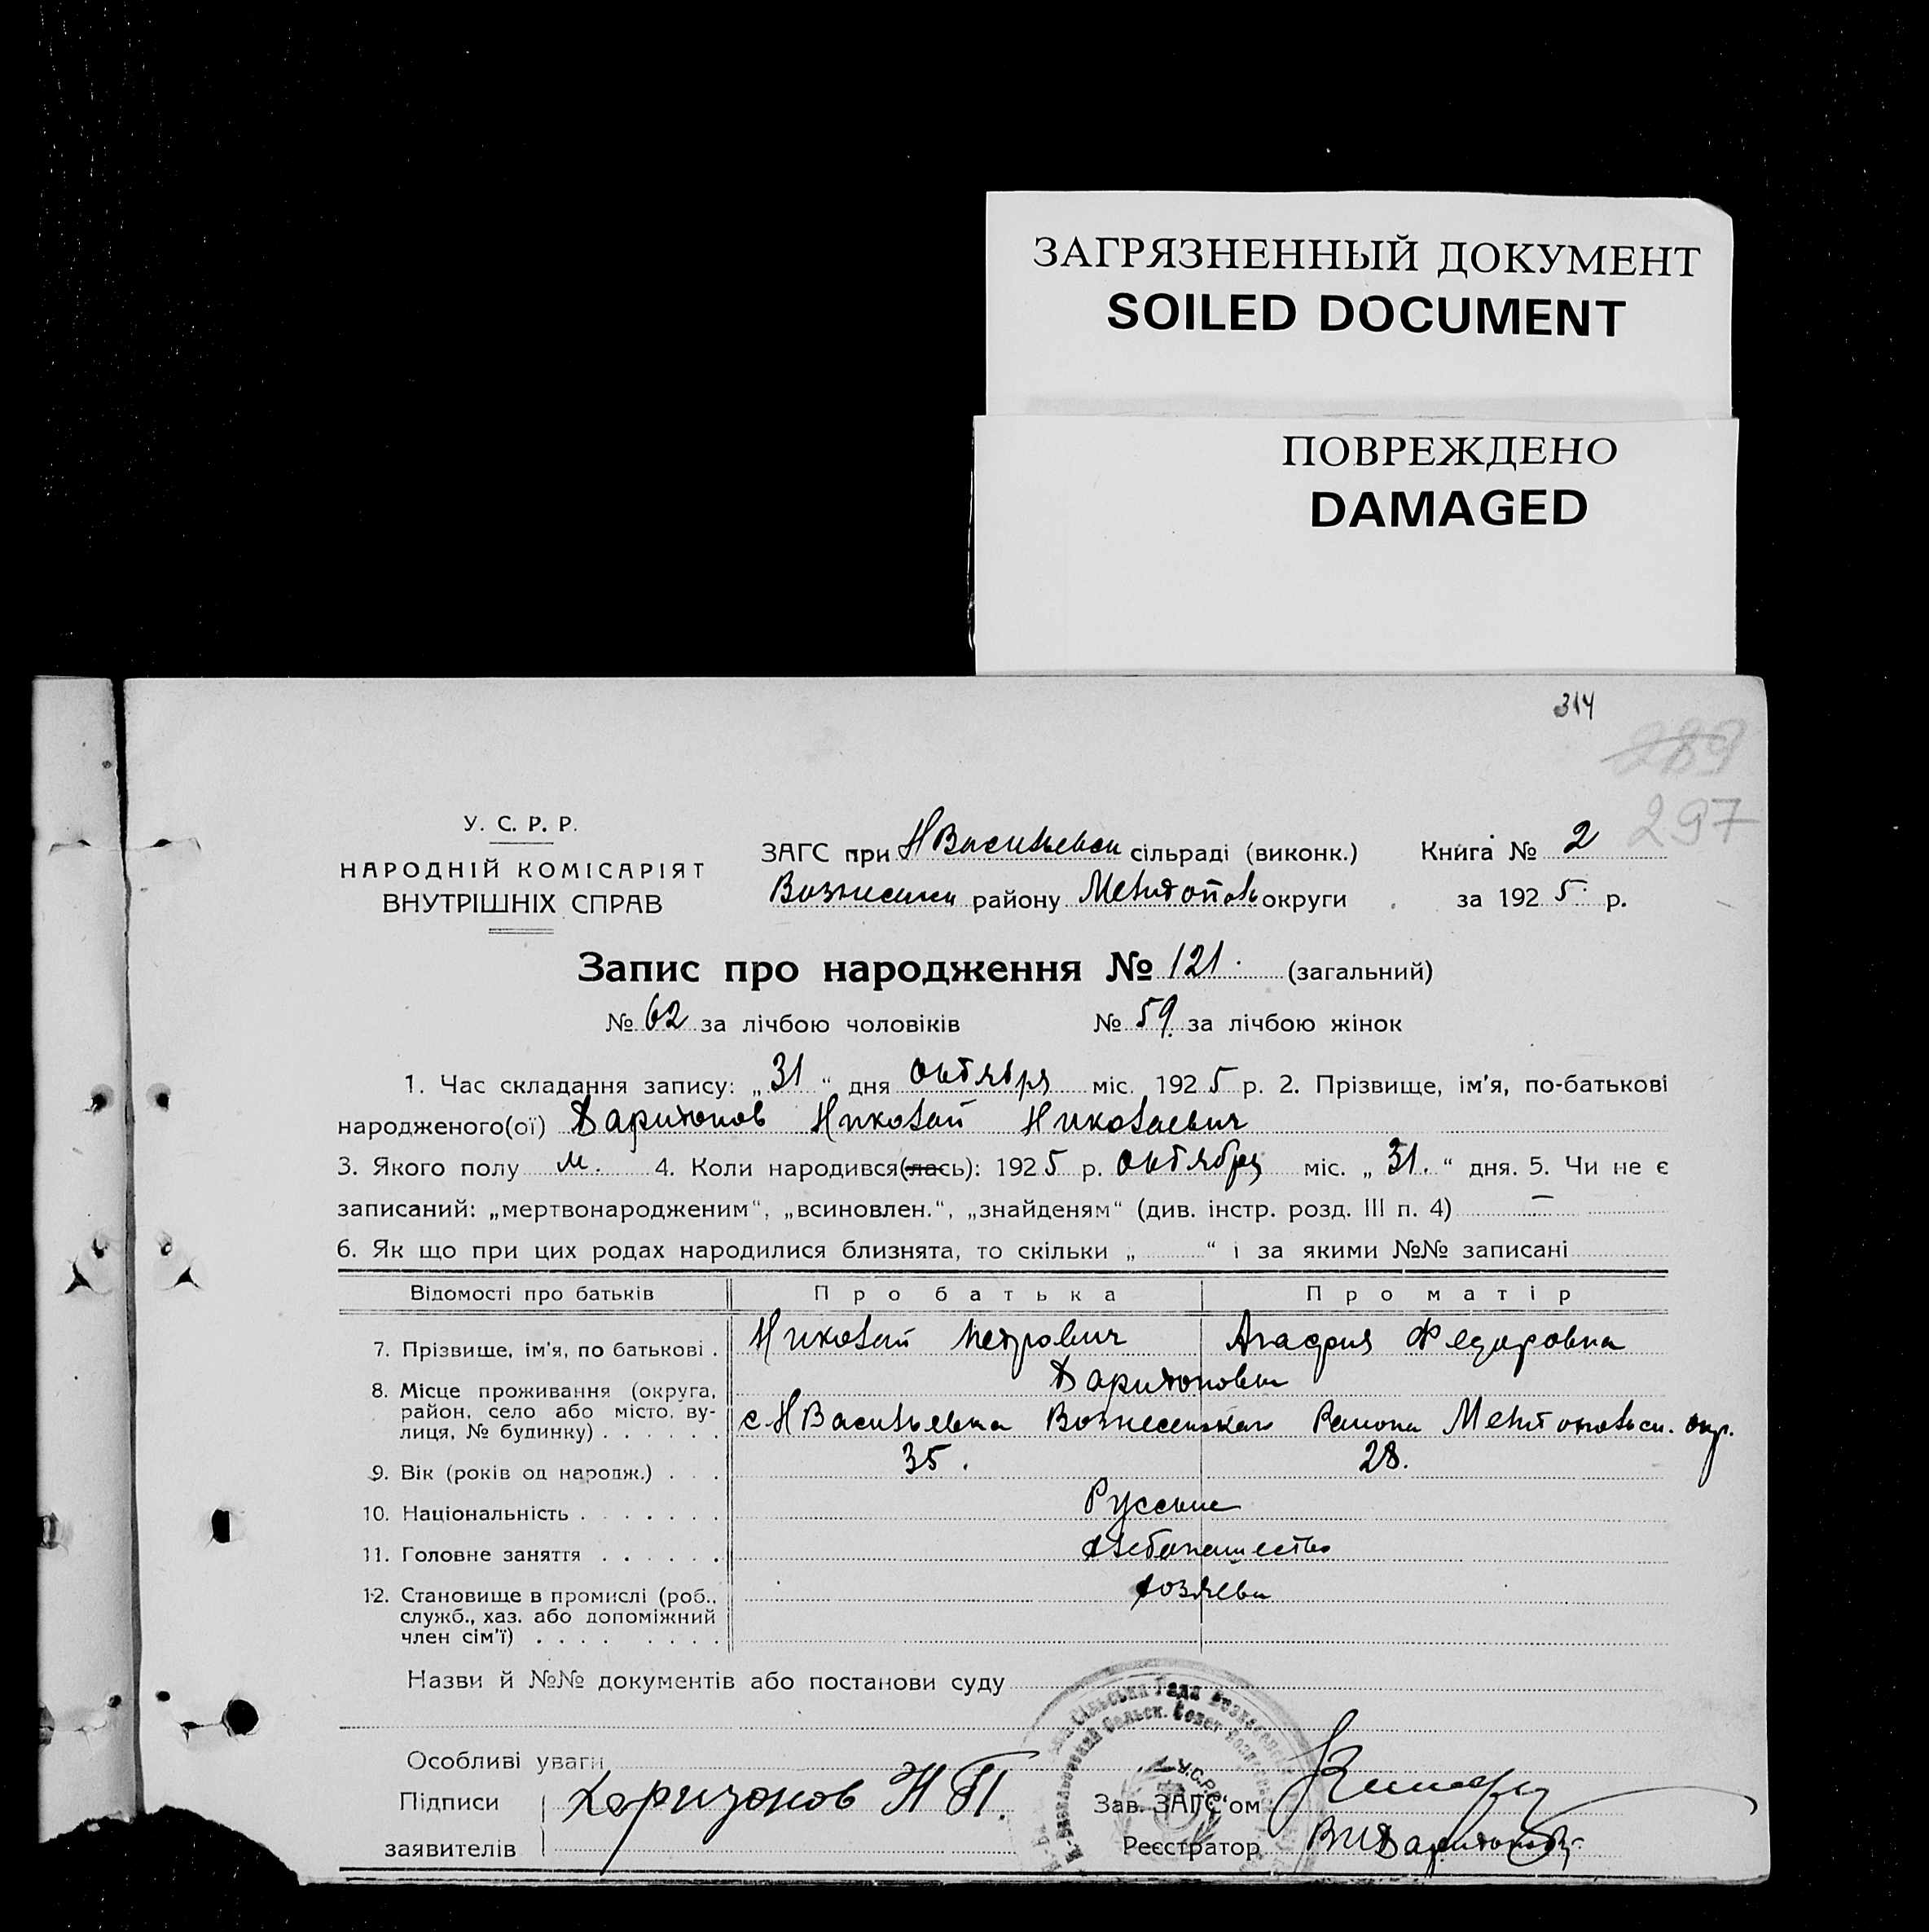 ЗАГРЯЗНЕННЫЙ ДОКУМЕНТ
SOILED DOCUMENT
ПОВРЕЖДЕНО
DAMAGED
314
289
297
У. С. Р. Р.
НАРОДНІЙ КОМІСАРІЯТ
ВНУТРІШНІХ СПРАВ
ЗАГС при НВасильевск сільраді (виконк.) Книга № 2
Вознесенск району Мелитополь округи за 1925 р.
Запис про народження № 121. (загальний)
№ 62 за лічбою чоловіків № 59. за лічбою жінок
1. Час складання запису: „31“ дня октября міс. 1925 р. 2. Прізвище, ім'я, по-батькові
народженого(ої) Харитонов Николай Николаевич
3. Якого полу м. 4. Коли народився(лась): 1925 р. октября міс. „31.“ дня. 5. Чи не є
записаний: „мертвонародженим“, „всиновлен.“, „знайденям“ (див. інстр. розд. III п. 4) —
6. Як що при цих родах народилися близнята, то скільки „ “ і за якими №№ записані
Відомості про батьків Про батька Про матір
7. Прізвише, ім'я, по батькові . Николай Петрович Агафия Федоровна
Харитоновы
8. Місце проживання (округа, район, село або місто, вулиця, № будинку) . . . . . . с. НВасильевка Вознесенского Района Мелитопольск. окр.
9. Вік (років од народж.) . . . 35. 28.
10. Національність . . . . . . . Русские
11. Головне заняття . . . . . . хлебопашество
12. Становище в промислі (роб., служб., хаз. або допоміжний член сім'ї) . . . . . . . . хозяева
Назви й №№ документів або постанови суду
Особливі уваги
Підписи
заявителів
Харитонов Н П.
Зав. ЗАГС'ом
Реєстратор ВИХаритонов
У.С.Р.Р.